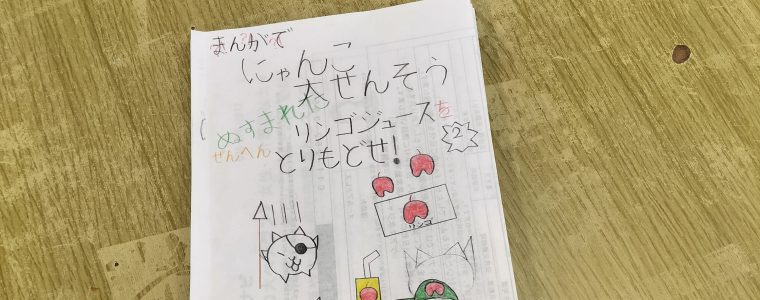 まんがで
にゃんこ
大せんそう
ぬすまれた
リンゴジュースを
2
せんぺん
とりもどせ!
リンゴ